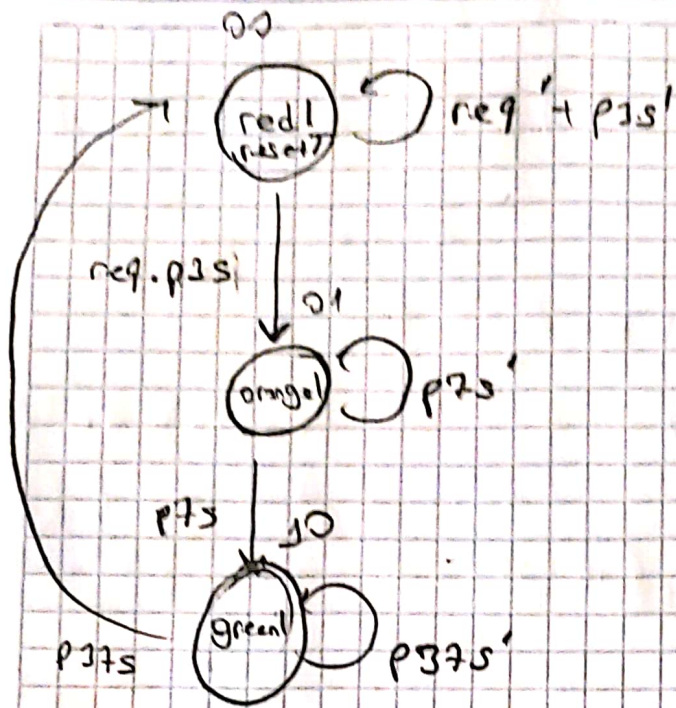 00
red!
req' + p3s'
req.p3s
01
orange!
p7s'
p7s
10
green!
p37s
p37s'